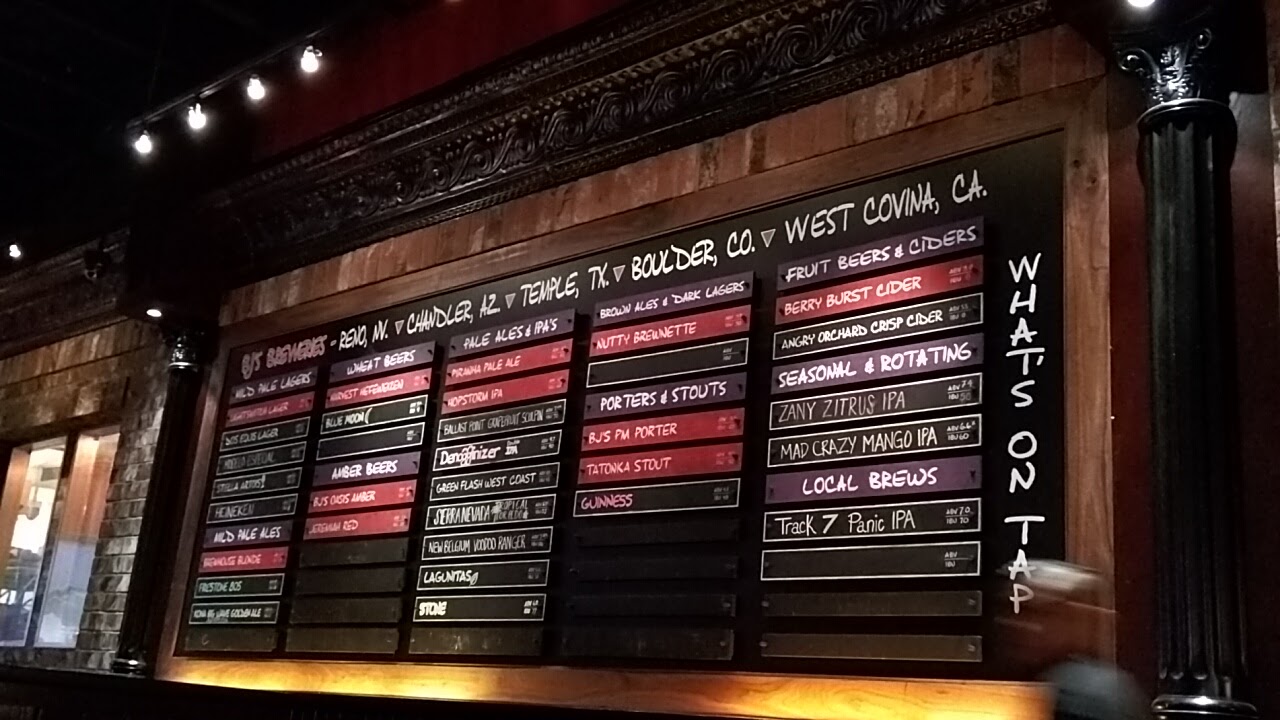 BJ'S BREWERIES - RENO, NV. ▽ CHANDLER, AZ. ▽ TEMPLE, TX. ▽ BOULDER, CO. ▽ WEST COVINA, CA.
MILD PALE LAGERS
LIGHTSWITCH LAGER
MODELO ESPECIAL
STELLA ARTOIS
HEINEKEN
MILD PALE ALES
BREWHOUSE BLONDE
FIRESTONE 805
KONA BIG WAVE GOLDEN ALE
WHEAT BEERS
HARVEST HEFEWEIZEN
BLUE MOON
AMBER BEERS
BJ'S OASIS AMBER
JEREMIAH RED
PALE ALES & IPA'S
PIRANHA PALE ALE
HOPSTORM IPA
BALLAST POINT GRAPEFRUIT SCULPIN
Denogginizer
GREEN FLASH WEST COAST
SIERRA NEVADA TROPICAL TORPEDO
NEW BELGIUM, VOODOO RANGER
LAGUNITAS
STONE
BROWN ALES & DARK LAGERS
NUTTY BREWNETTE
PORTERS & STOUTS
BJ'S PM PORTER
TATONKA STOUT
GUINNESS
FRUIT BEERS & CIDERS
BERRY BURST CIDER
ANGRY ORCHARD CRISP CIDER
SEASONAL & ROTATING
ZANY ZITRUS IPA
MAD CRAZY MANGO IPA
LOCAL BREWS
Track 7 Panic IPA ABV 7.0
IBU 70
ABV
IBU
WHAT'S ON TAP